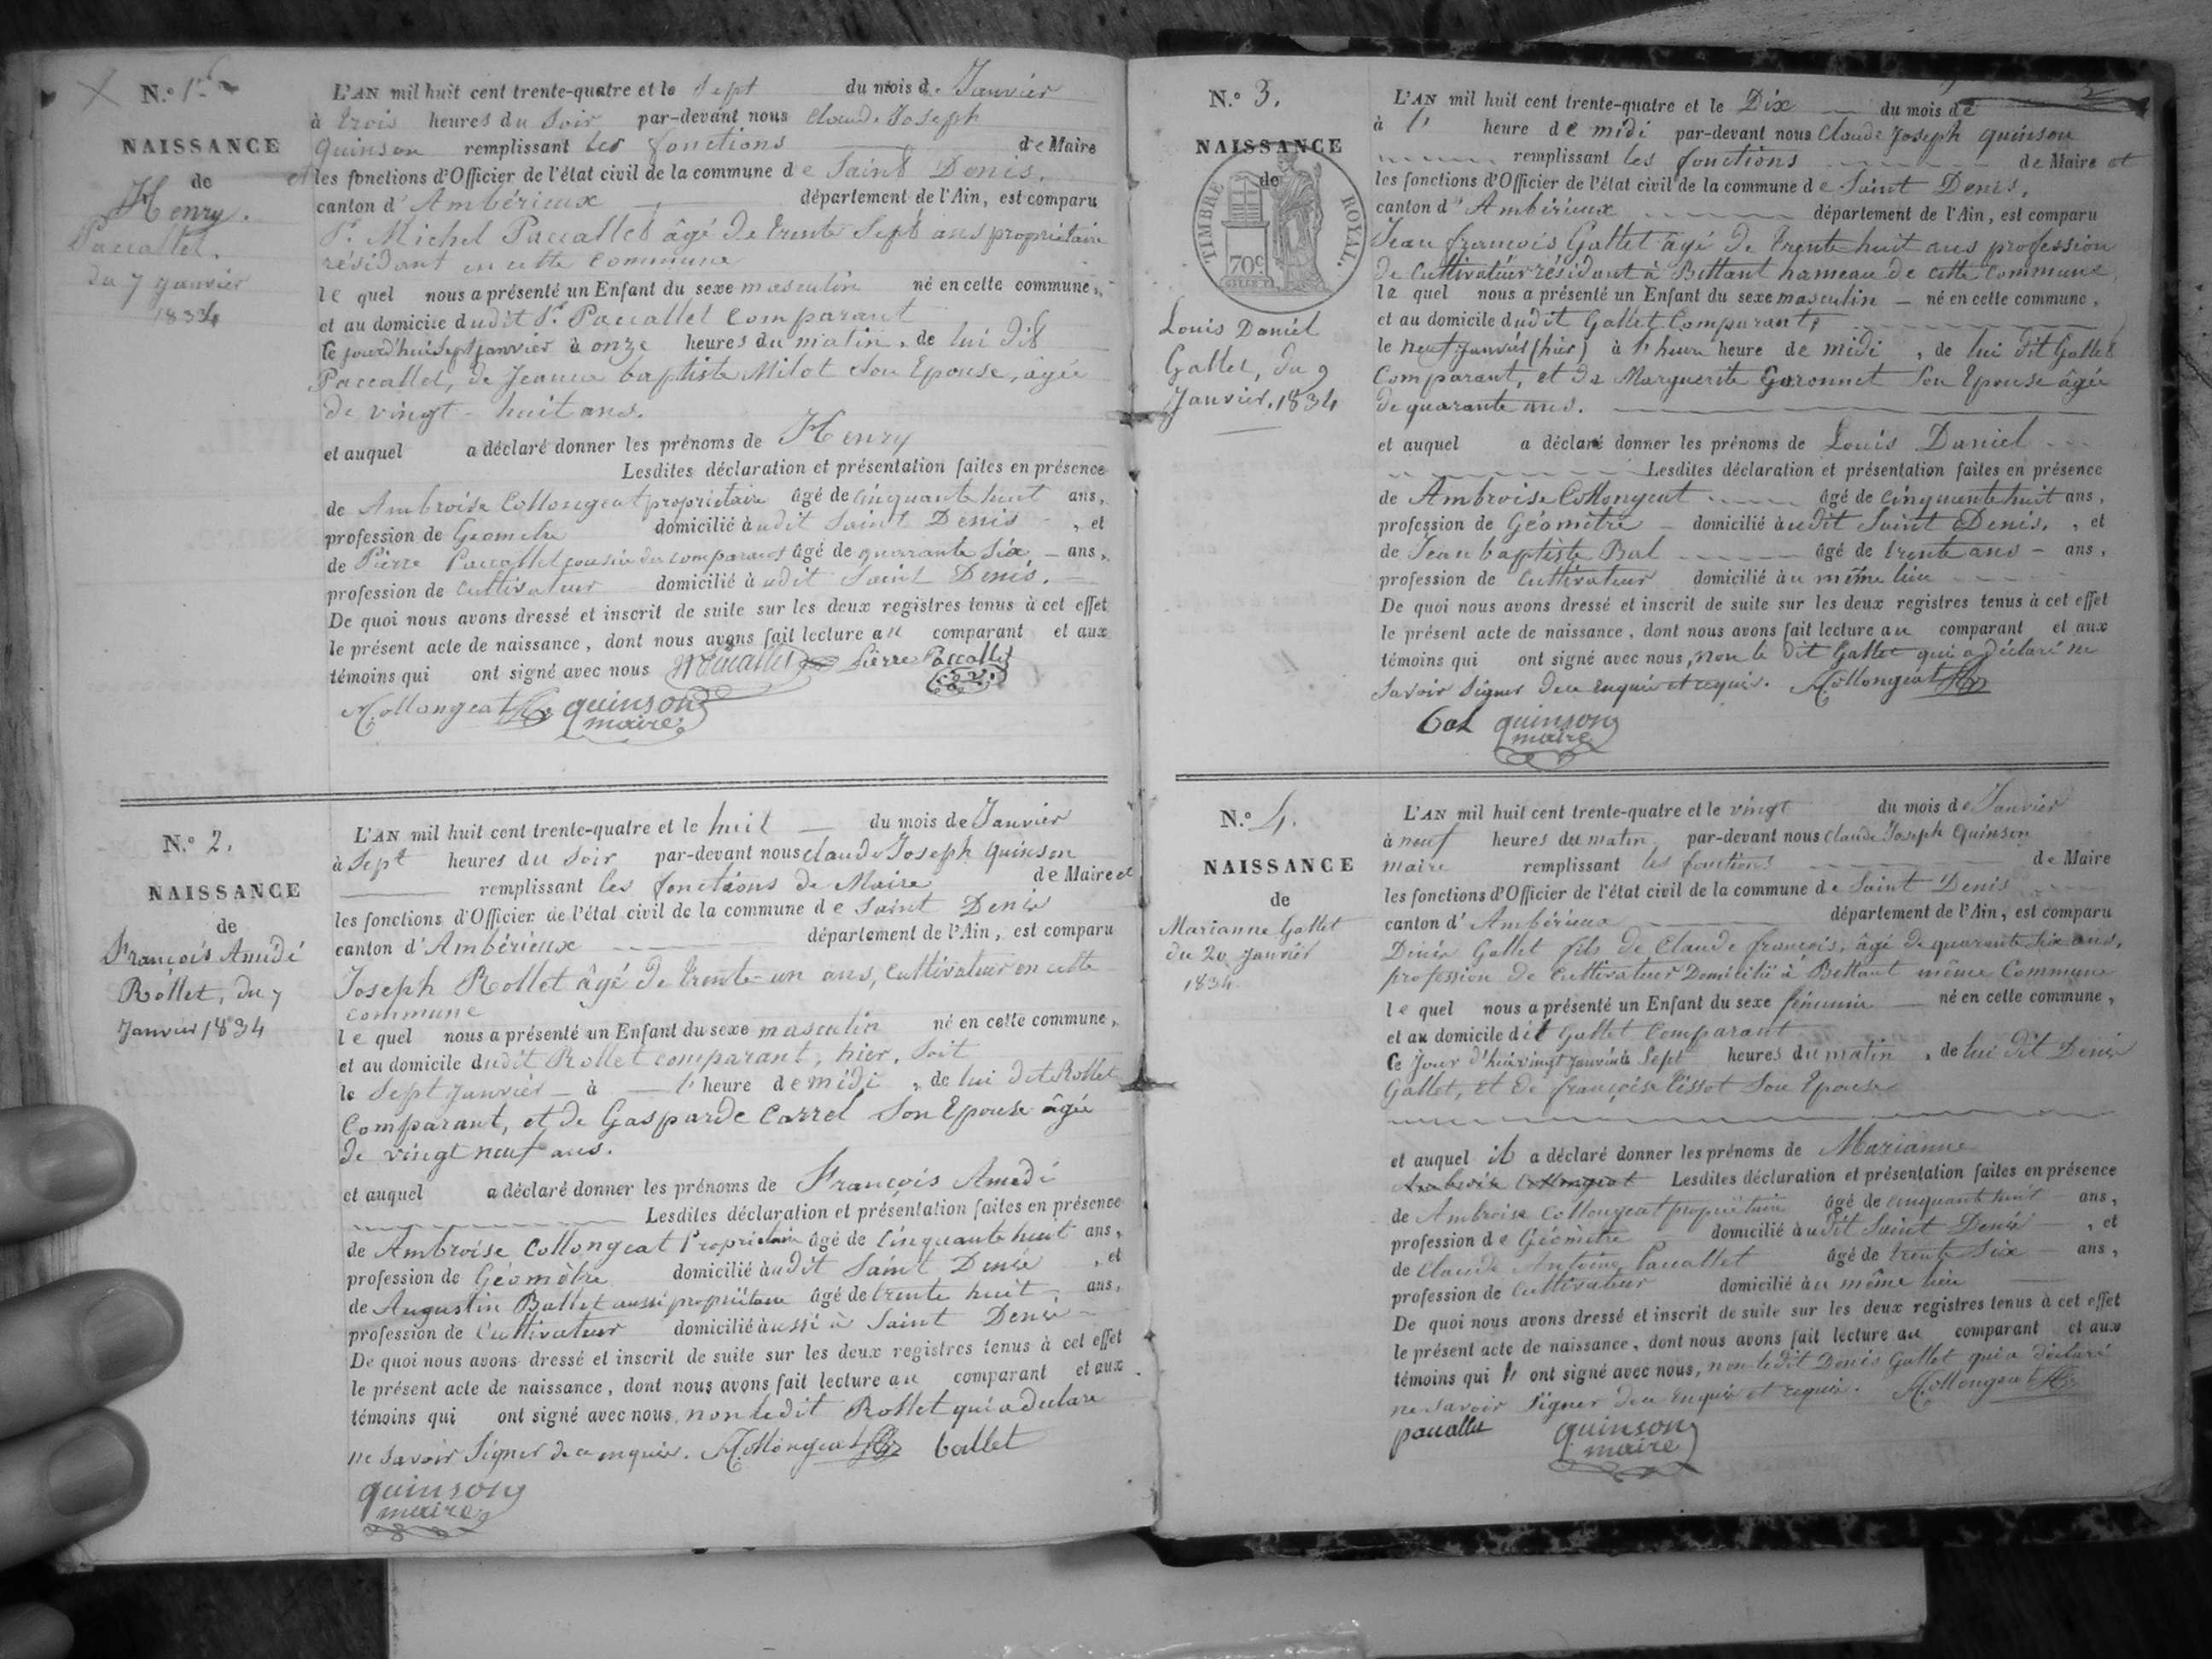 N.º 1.er
NAISSANCE
de
Henry
Paccallet.
du 7 Janvier
1834
L'AN mil huit cent trente-quatre et le Sept du mois de Janvier
à trois heures du Soir par-devant nous Claude Joseph
quinson remplissant les fonctions de Maire
et les fonctions d'Officier de l'état civil de la commune de Saint Denis.
canton d'Ambérieux département de l'Ain, est comparu
Sr. Michel Paccallet âgé de trente Sept ans propriétaire
résidant en cette Commune
lequel nous a présenté un Enfant du sexe masculin né en cette commune,
et au domicile dudit Sr. Paccallet Comparant
le jourd'hui Sept janvier à onze heures du matin, de lui dit
Paccallet, de Jeanne baptiste Milot Son Epouse, âgée
de vingt-huit ans.
et auquel a déclaré donner les prénoms de Henry
Lesdites déclaration et présentation faites en présence
de Ambroise Collongeat propriétaire âgé de cinquante huit ans,
profession de Géomètre domicilié audit Saint Denis, et
de Pierre Paccallet cousin du comparant âgé de quarante Six ans,
profession de Cultivateur domicilié audit Saint Denis.
De quoi nous avons dressé et inscrit de suite sur les deux registres tenus à cet effet
le présent acte de naissance, dont nous avons fait lecture au comparant et aux
témoins qui ont signé avec nous MPaccallet Pierre Paccallet
ACollongeat quinson
maire
N.º 2.
NAISSANCE
de
François Amédé
Rollet, du 7
Janvier 1834
L'AN mil huit cent trente-quatre et le huit du mois de Janvier
à Sept heures du Soir par-devant nous Claude Joseph quinson
remplissant les fonctions de Maire de Maire et
les fonctions d'Officier de l'état civil de la commune de Saint Denis
canton d'Ambérieux département de l'Ain, est comparu
Joseph Rollet âgé de trente-un ans, Cultivateur en cette
commune
lequel nous a présenté un Enfant du sexe masculin né en cette commune,
et au domicile dudit Rollet comparant, hier, Soit
le Sept janvier à l' heure de midi, de lui dit Rollet
Comparant, et de Gasparde Carrel Son Epouse âgée
de vingt neuf ans.
et auquel a déclaré donner les prénoms de François Amédé
Lesdites déclaration et présentation faites en présence
de Ambroise Collongeat Propriétaire âgé de cinquante huit ans,
profession de Géomètre domicilié audit Saint Denis, et
de Augustin Ballet aussi propriétaire âgé de trente huit ans,
profession de Cultivateur domicilié aussi à Saint Denis
De quoi nous avons dressé et inscrit de suite sur les deux registres tenus à cet effet
le présent acte de naissance, dont nous avons fait lecture au comparant et aux
témoins qui ont signé avec nous, non ledit Rollet qui a déclaré
ne Savoir Signer de ce enquis. ACollongeat ballet
quinson
maire
N.º 3.
NAISSANCE
de
TIMBRE ROYAL.
70c
Louis Daniel
Gallet, du 9
Janvier, 1834
L'AN mil huit cent trente-quatre et le Dix du mois de
à l' heure de midi par-devant nous Claude Joseph quinson
remplissant les fonctions de Maire et
les fonctions d'Officier de l'état civil de la commune de Saint Denis,
canton d'Ambérieux département de l'Ain, est comparu
Jean françois Gallet âgé de trente-huit ans profession
de Cultivateur résidant à Bettant hameau de cette Commune,
lequel nous a présenté un Enfant du sexe masculin né en cette commune,
et au domicile dudit Gallet Comparant,
le neuf Janvier (hier) à l' heure heure de midi, de lui dit Gallet
Comparant, et de Marguerite Garonnet Son Epouse âgée
de quarante ans.
et auquel a déclaré donner les prénoms de Louis Daniel
Lesdites déclaration et présentation faites en présence
de Ambroise Collongeat âgé de cinquante huit ans,
profession de Géomètre domicilié audit Saint Denis, et
de Jean baptiste Bal âgé de trente ans ans,
profession de Cultivateur domicilié au même lieu
De quoi nous avons dressé et inscrit de suite sur les deux registres tenus à cet effet
le présent acte de naissance, dont nous avons fait lecture au comparant et aux
témoins qui ont signé avec nous, non le dit Gallet qui a déclaré ne
Savoir Signer de ce enquis et requis. ACollongeat
bal quinson
maire
N.º 4.
NAISSANCE
de
Marianne Gallet
du 20 Janvier
1834.
L'AN mil huit cent trente-quatre et le vingt du mois de Janvier
à neuf heures du matin par-devant nous Claude Joseph Quinson
maire remplissant les fonctions de Maire
les fonctions d'Officier de l'état civil de la commune de Saint Denis
canton d'Ambérieux département de l'Ain, est comparu
Denis Gallet fils de Claude françois, âgé de quarante Six ans,
profession de Cultivateur Domicilié à Bettant même Commune
lequel nous a présenté un Enfant du sexe féminin né en cette commune,
et au domicile dit Gallet Comparant
Ce jour d'hui vingt janvier à Sept heures du matin, de lui dit Denis
Gallet, et de françoise Pissot Son Epouse
et auquel il a déclaré donner les prénoms de Marianne
Ambroise Collongeat Lesdites déclaration et présentation faites en présence
de Ambroise Collongeat propriétaire âgé de cinquante huit ans,
profession de Géomètre domicilié audit Saint Denis, et
de Claude Antoine Paccallet âgé de trente Six ans,
profession de Cultivateur domicilié au même lieu
De quoi nous avons dressé et inscrit de suite sur les deux registres tenus à cet effet
le présent acte de naissance, dont nous avons fait lecture au comparant et aux
témoins qui ont signé avec nous, non ledit Denis Gallet qui a déclaré
ne Savoir Signer de ce enquis et requis. ACollongeat
paccallet quinson
maire